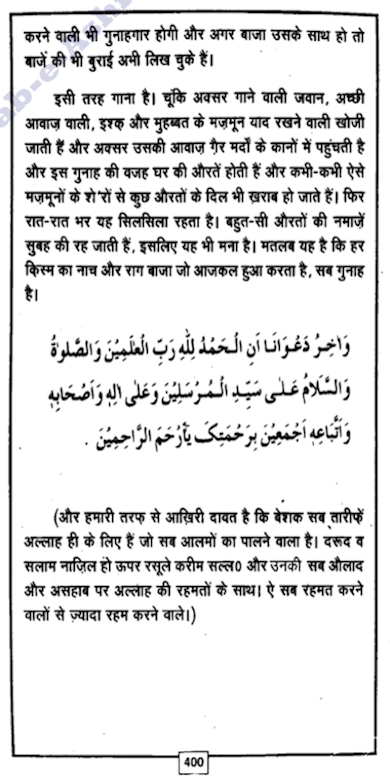 करने वाली भी गुनाहगार होगी और अगर बाजा उसके साथ हो तो
बाजें की भी बुराई अभी लिख चुके हैं।
इसी तरह गाना है। चूंकि अक्सर गाने वाली जवान, अच्छी
आवाज़ वाली, इश्क़ और मुहब्बत के मज़मून याद रखने वाली खोजी
जाती हैं और अक्सर उसकी आवाज़ ग़ैर मर्दों के कानों में पहुंचती है
और इस गुनाह की वजह घर की औरतें होती हैं और कभी-कभी ऐसे
मज़मूनों के शे'रों से कुछ औरतों के दिल भी ख़राब हो जाते हैं। फिर
रात-रात भर यह सिलसिला रहता है। बहुत-सी औरतों की नमाज़ें
सुबह की रह जाती हैं, इसलिए यह भी मना है। मतलब यह है कि हर
क़िस्म का नाच और राग बाजा जो आजकल हुआ करता है, सब गुनाह
है।
وَاٰخِرُ دَعْوَانَا اَنِ الْحَمْدُ لِلّٰهِ رَبِّ الْعٰلَمِيْنَ وَالصَّلٰوةُ
وَالسَّلَامُ عَلٰى سَيِّدِ الْمُرْسَلِيْنَ وَعَلٰى اٰلِهٖ وَاَصْحَابِهٖ
وَاَتْبَاعِهٖ اَجْمَعِيْنَ بِرَحْمَتِكَ يَآاَرْحَمَ الرَّاحِمِيْنَ .
(और हमारी तरफ़ से आख़िरी दावत है कि बेशक सब तारीफ़ें
अल्लाह ही के लिए हैं जो सब आलमों का पालने वाला है। दरूद व
सलाम नाज़िल हो ऊपर रसूले करीम सल्ल० और उनकी सब औलाद
और असहाब पर अल्लाह की रहमतों के साथ। ऐ सब रहमत करने
वालों से ज़्यादा रहम करने वाले।)
400